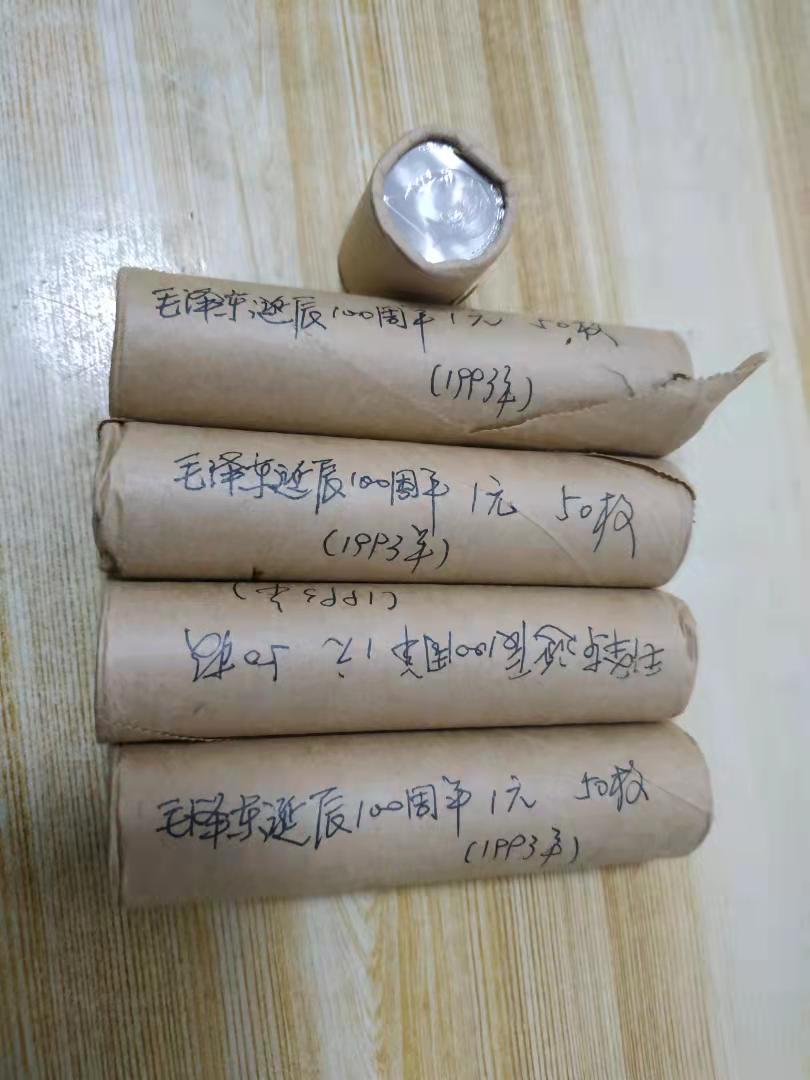 毛泽东诞辰100周年1元 50枚
(1993年)
毛泽东诞辰100周年 1元 50枚
(1993年)
毛泽东诞辰100周年 1元 50枚
(1993年)
毛泽东诞辰100周年 1元 50枚
(1993年)